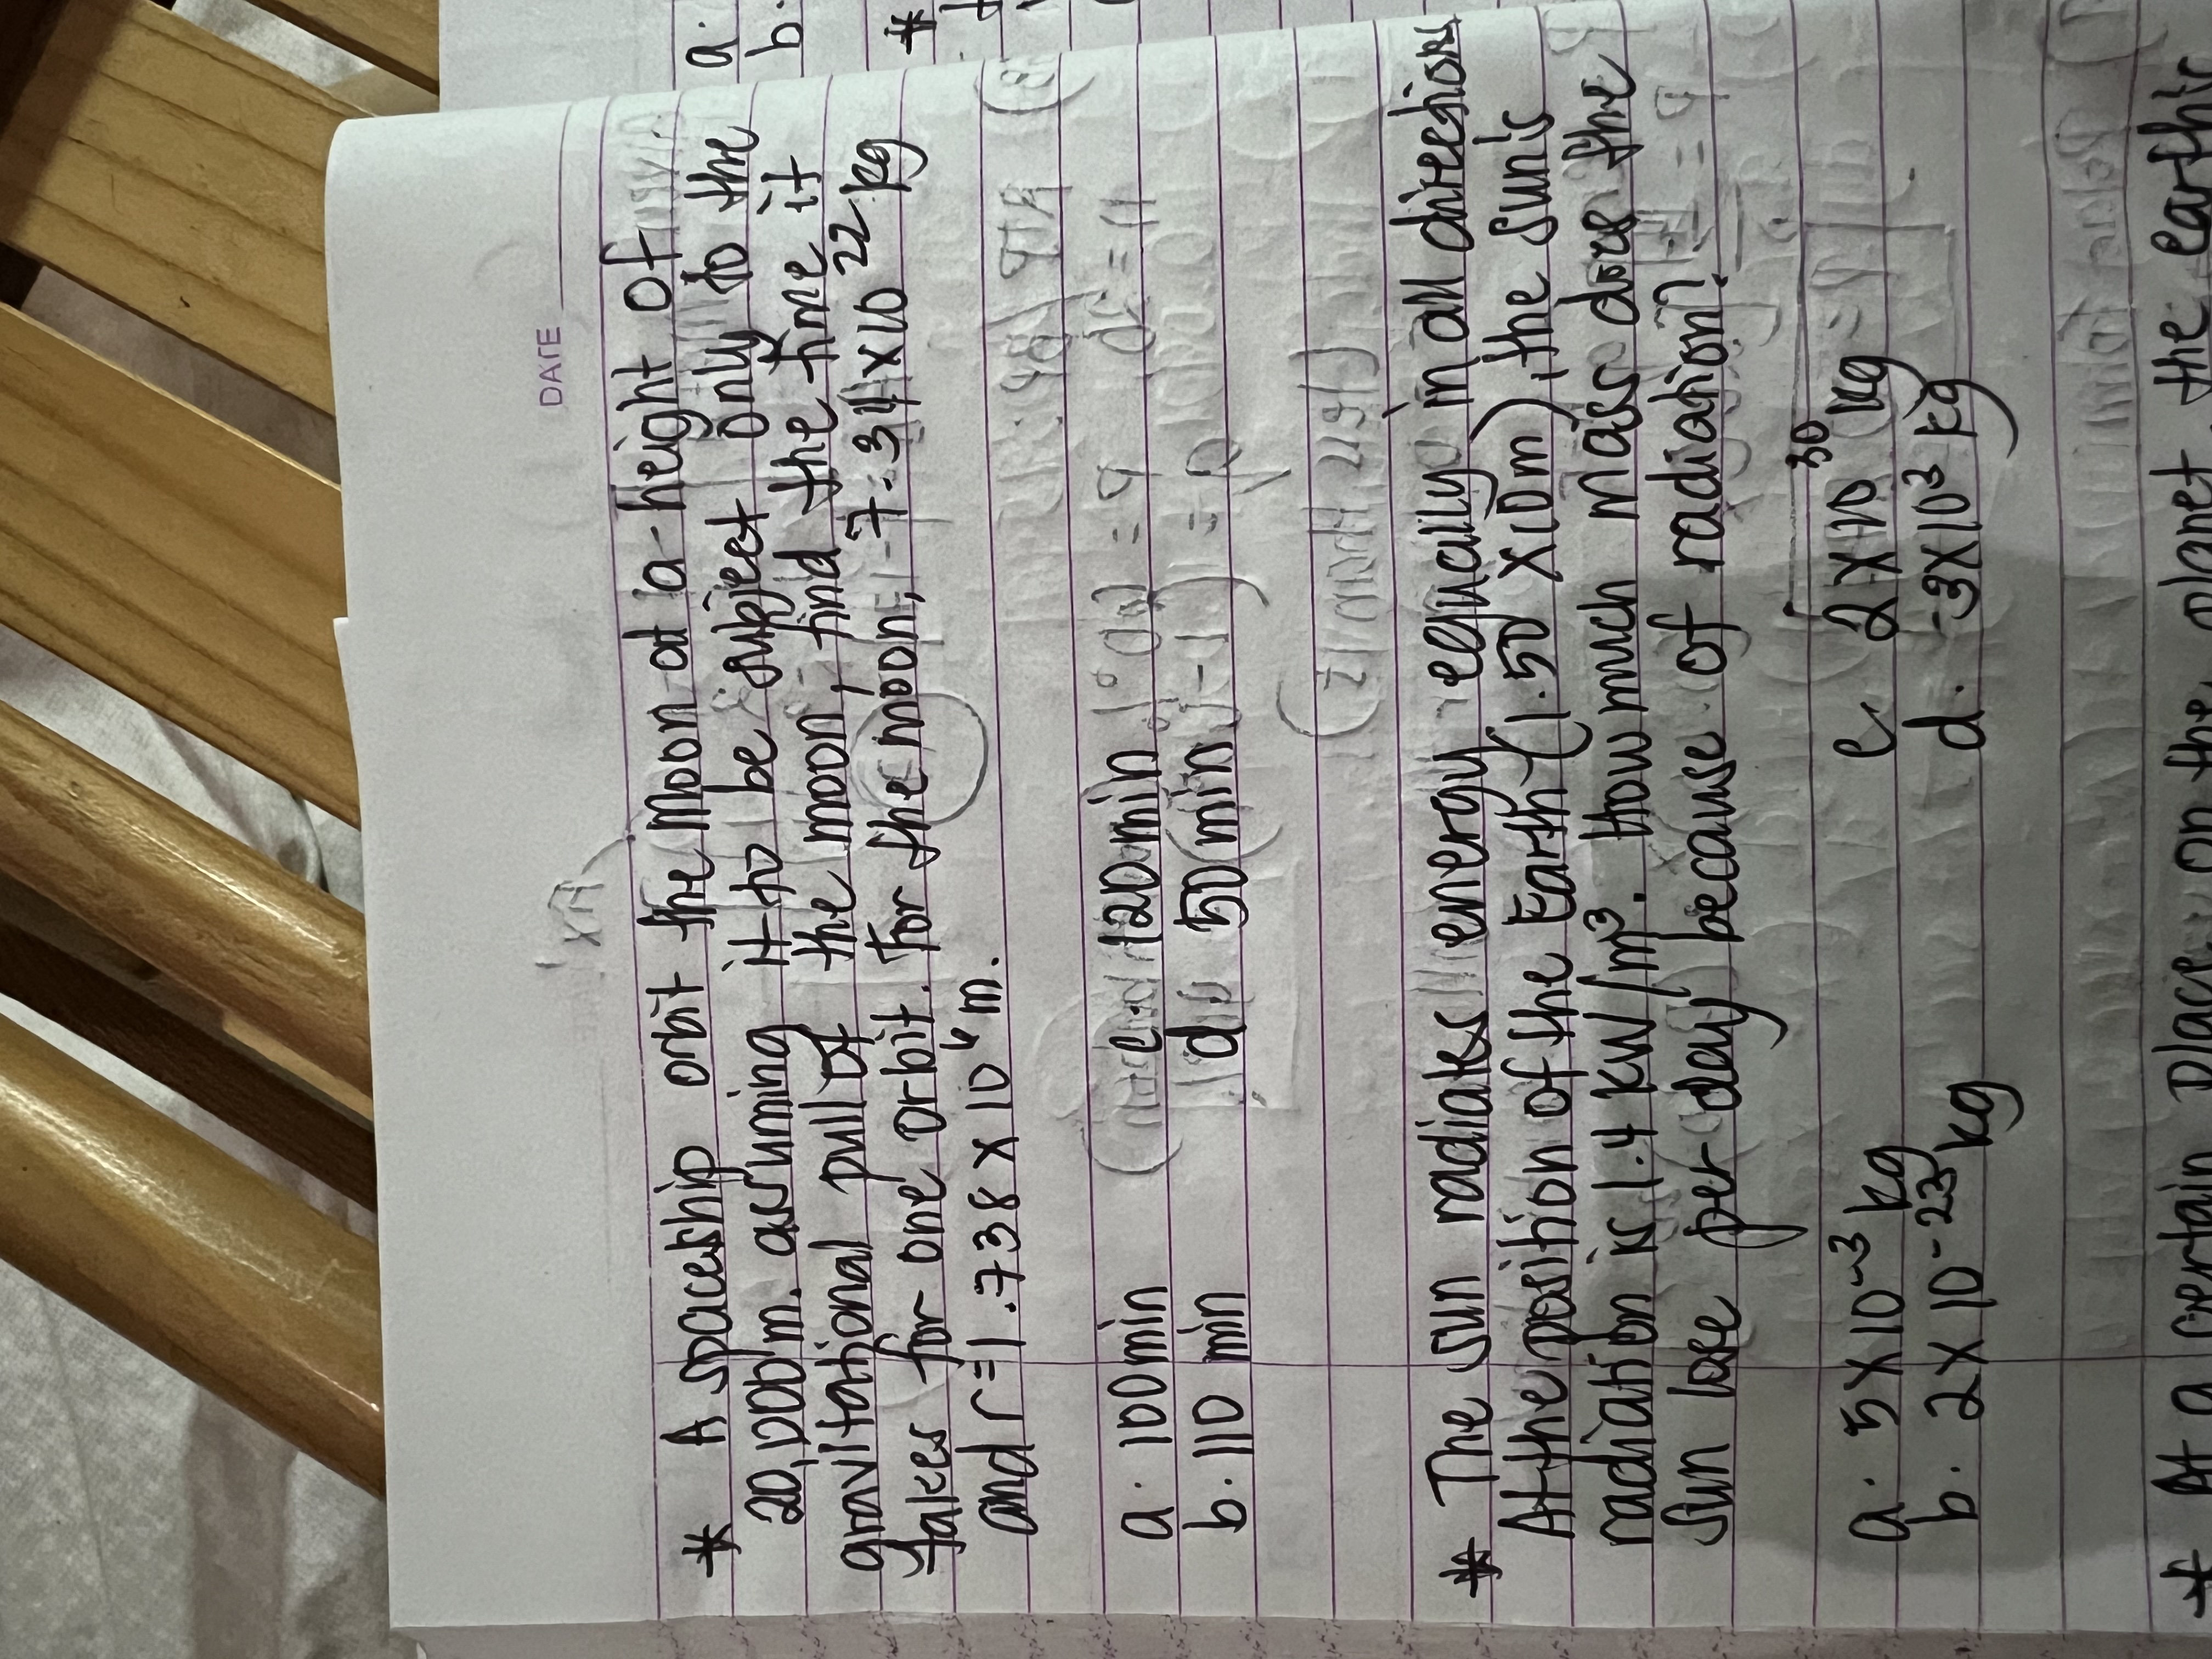 a.
b.
*
DATE
* A spaceship orbit the Moon at a height of
20,000m. assuming it to be subject only to the
gravitational pull of the moon, find the time it
takes for one orbit. For the moon, 7.34 x 10^22 kg
and r = 1.738 x 10^6 m.
a. 100min c 120min
b. 110 min d 50 min
* The sun radiates energy equally in all directions
At the position of the Earth (1.50 x 10 m), the sun's
radiation is 1.4 kW/m³. How much mass does the
sun lose per day because of radiation?
a. 5 x 10^-3 kg c 2 x 10^30 kg
b. 2 x 10^-23 kg d. -3 x 10^3 kg
* At a certain place on the planet, the earth's